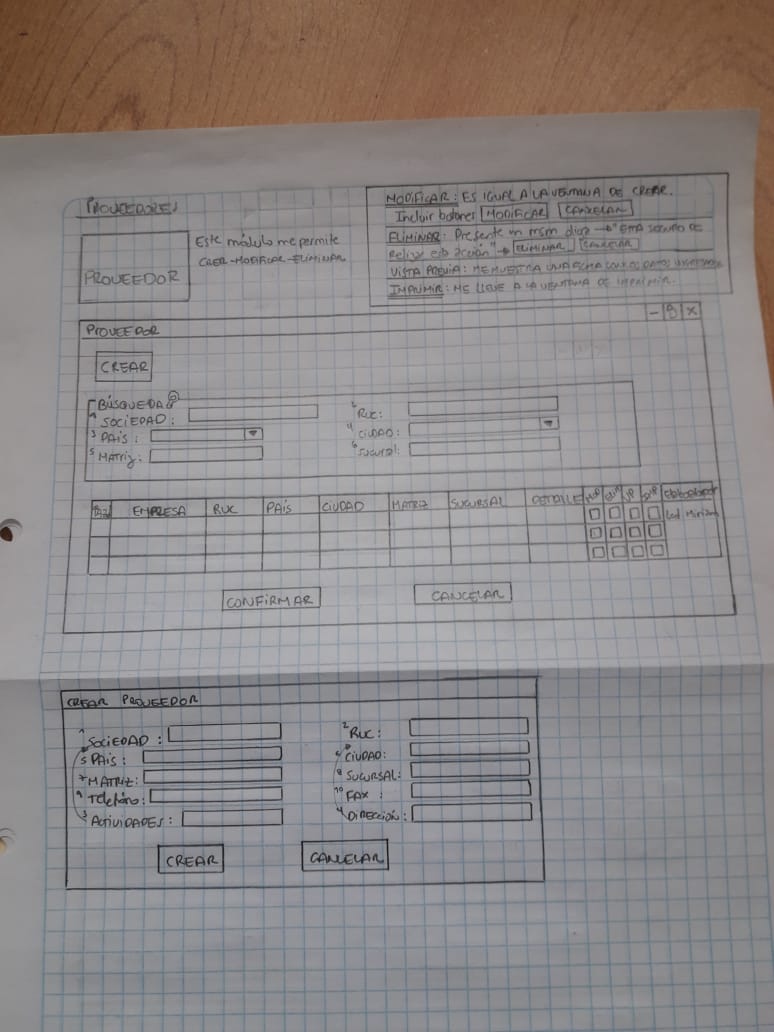 PROVEEDORES
PROVEEDOR
Este módulo me permite
CREAR-MODIFICAR-ELIMINAR
MODIFICAR: ES IGUAL A LA VENTANA DE CREAR.
Incluir botones MODIFICAR CANCELAR
ELIMINAR: Presente un msm diga → "ESTA SEGURO DE
Realizar esta acción" → ELIMINAR CANCELAR
VISTA PREVIA: ME MUESTRA UNA FICHA CON LOS DATOS
IMPRIMIR: ME LLEVE A LA VENTANA DE IMPRIMIR.
PROVEEDOR
- X
CREAR
BÚSQUEDA
1 SOCIEDAD:
2 RUC:
3 PAÍS:
4 CIUDAD:
5 MATRIZ:
6 Sucursal:
EMPRESA RUC PAÍS CIUDAD MATRIZ SUCURSAL DETALLE MOD ELIM VP IMP
CONFIRMAR CANCELAR
CREAR PROVEEDOR
1 SOCIEDAD:
2 RUC:
5 PAÍS:
6 CIUDAD:
7 MATRIZ:
8 SUCURSAL:
9 Teléfono:
10 FAX:
3 ACTIVIDADES:
4 DIRECCIÓN:
CREAR CANCELAR